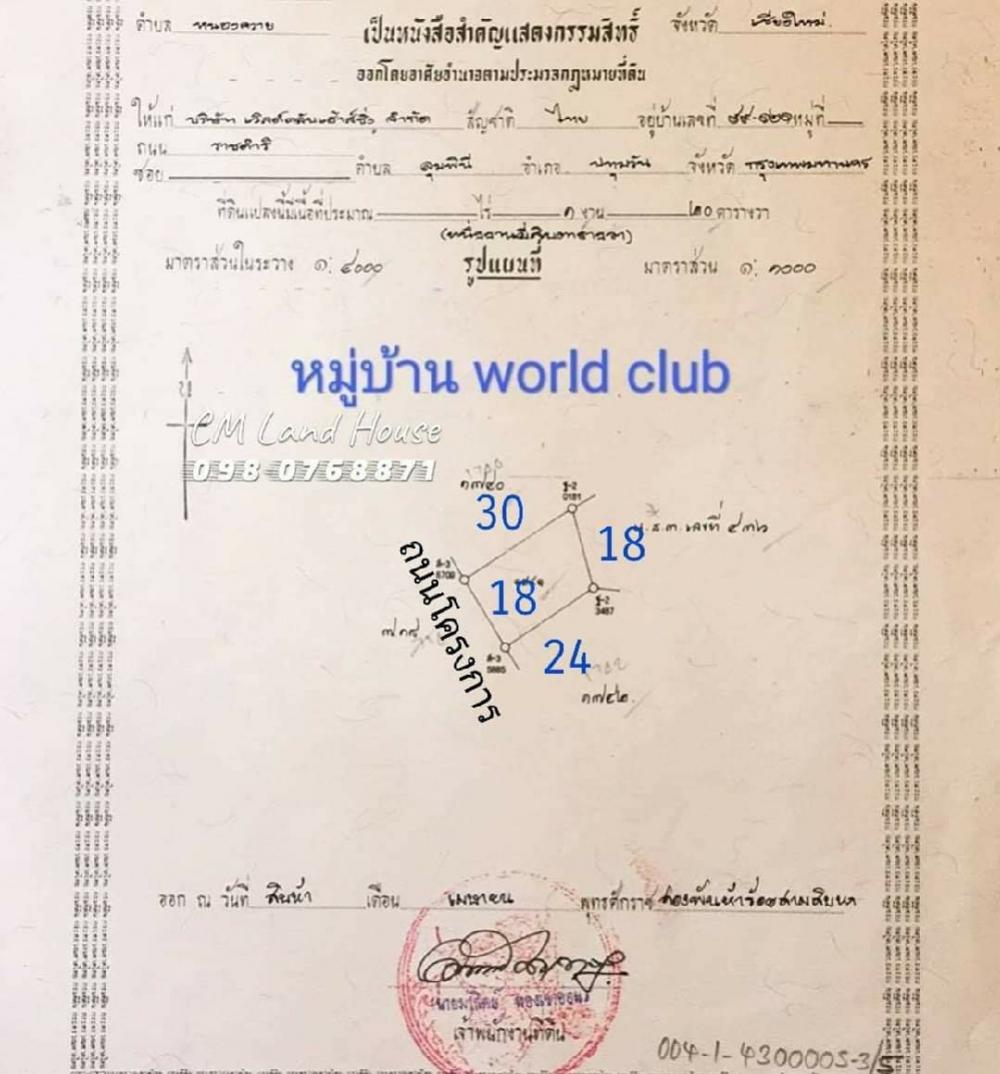 ตำบล หนองควาย เป็นหนังสือสำคัญแสดงกรรมสิทธิ์ จังหวัด เชียงใหม่
ออกโดยอาศัยอำนาจตามประมวลกฎหมายที่ดิน
ให้แก่ บริษัท จำกัด สัญชาติ ไทย อยู่บ้านเลขที่ หมู่ที่
ถนน ราชดำริ
ซอย ตำบล ลุมพินี อำเภอ ปทุมวัน จังหวัด กรุงเทพมหานคร
ที่ดินแปลงนี้มีเนื้อที่ประมาณ ไร่ ๑ งาน ๒๐ ตารางวา
(หนึ่งงานยี่สิบตารางวา)
มาตราส่วนในระวาง ๑: ๔๐๐๐ รูปแผนที่ มาตราส่วน ๑: ๑๐๐๐
น
หมู่บ้าน world club
CM Land House
098-0768871
๑๗๔๐
30
ธ-2
0181
น.ส.๓. เลขที่ ๔๓๖
18
ส-3
18
ธ-2
3487
ถนนโครงการ
๗๓๙
ส-3
24
๑๗๔๒
ออก ณ วันที่ สิบห้า เดือน เมษายน พุทธศักราช สองพันห้าร้อยสามสิบหก
เจ้าพนักงานที่ดิน
004-1-4300005-3/5